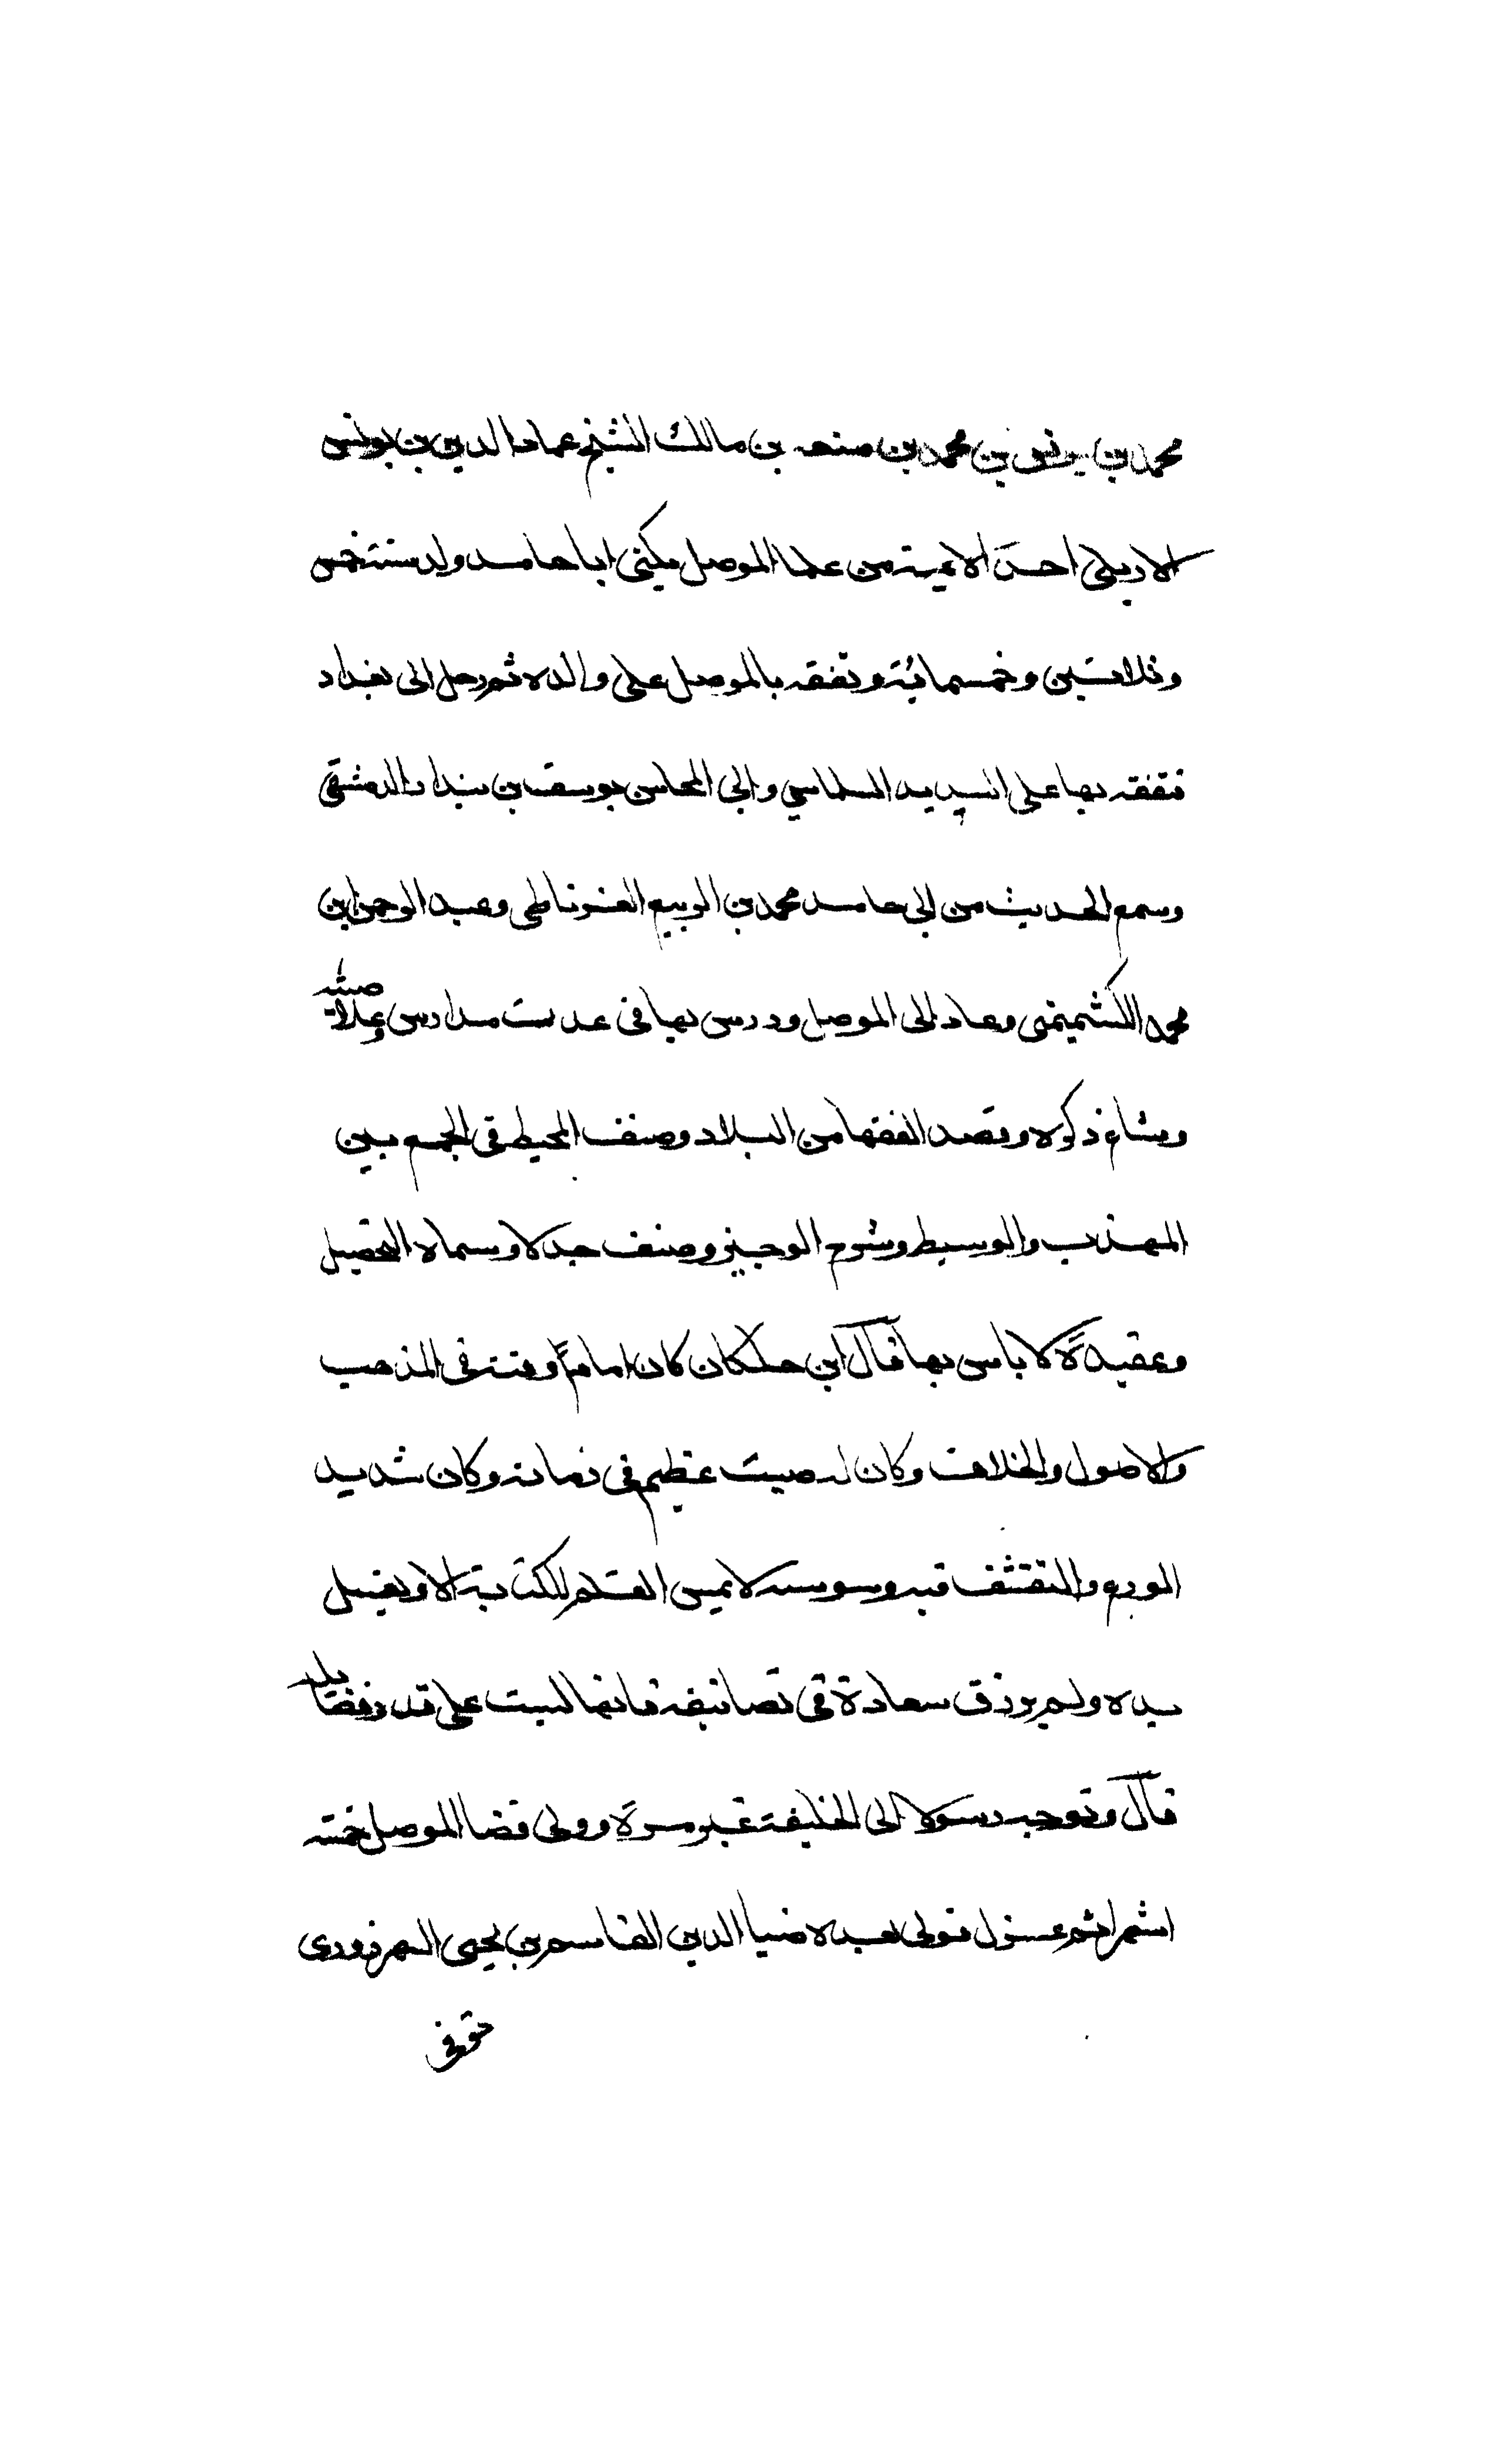 محمد بن يونس بن محمد بن منعه بن مالك الشيخ عماد الدين بن يونس
الاربلي احد الايمة من علما الموصل يكنى ابا حامد ولد سنة خمس
وثلاثين وخمسمائة وتفقه بالموصل على والده ثم رحل الى بغداد
فتفقه بها على السديد السلماسي وابى المحاسن يوسف بن بندار الدمشقى
وسمع الحديث من ابى حامد محمد بن الربيع الغرناطى وعبد الرحمن بن
محمد الكشميهنى وعاد الى الموصل ودرس بها فى عدت مدارس وعلا صيته
وشاع ذكره وقصد الفقها من البلاد وصنف المحيط فى الجمع بين
المهذب والوسيط وشرح الوجيز وصنف جدلا وسماه التحصيل
وعقيدة لا باس بها قال ابن خلكان كان اماما وقته فى المذهب
والاصول والخلاف وكان له صيت عظيم فى زمانه وكان شديد
الورع والتقشف فيه وسوسه لا يمس القلم للكتابة الا ويغسل
يده ولم يرزق سعادة فى تصانيفه فانها ليست على قدر فضايله
قال وتوجه رسولا الى الخليفة غير مرة وولى قضا الموصل خمسة
اشهر ثم عزل فولى بعده ضيا الدين القاسم بن يحيى الشهرزورى
توفى